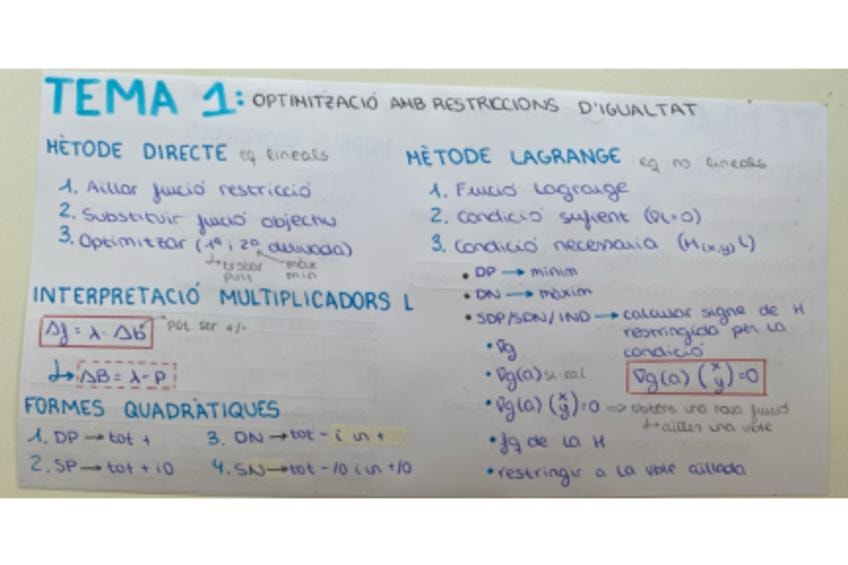 TEMA 1: OPTIMITZACIÓ AMB RESTRICCIONS D'IGUALTAT
MÈTODE DIRECTE eq lineals
1. Aïllar funció restricció
2. Substituir funció objectiu
3. Optimitzar (1ª i 2ª derivada)
↳ trobar punt
màx min
INTERPRETACIÓ MULTIPLICADORS L
Δf = λ · Δb pot ser +/-
↳ ΔB = λ - P
FORMES QUADRÀTIQUES
1. DP → tot +
2. SP → tot + i 0
3. DN → tot - i un +
4. SN → tot -/0 i un +/0
MÈTODE LAGRANGE eq no lineals
1. Funció Lagrange
2. Condició sufient (∇L=0)
3. Condició necessaria (H(x,y) L)
• DP → mínim
• DN → màxim
• SDP/SDN/IND → calcular signe de H
restringida per la
condició
∇g(a) (x y) = 0
• ∇g
• ∇g(a) si cal
• ∇g(a) (x y) = 0 => obtens una nova funció
↳ aïlles una vble
• fq de la H
• restringir a la vble aïllada